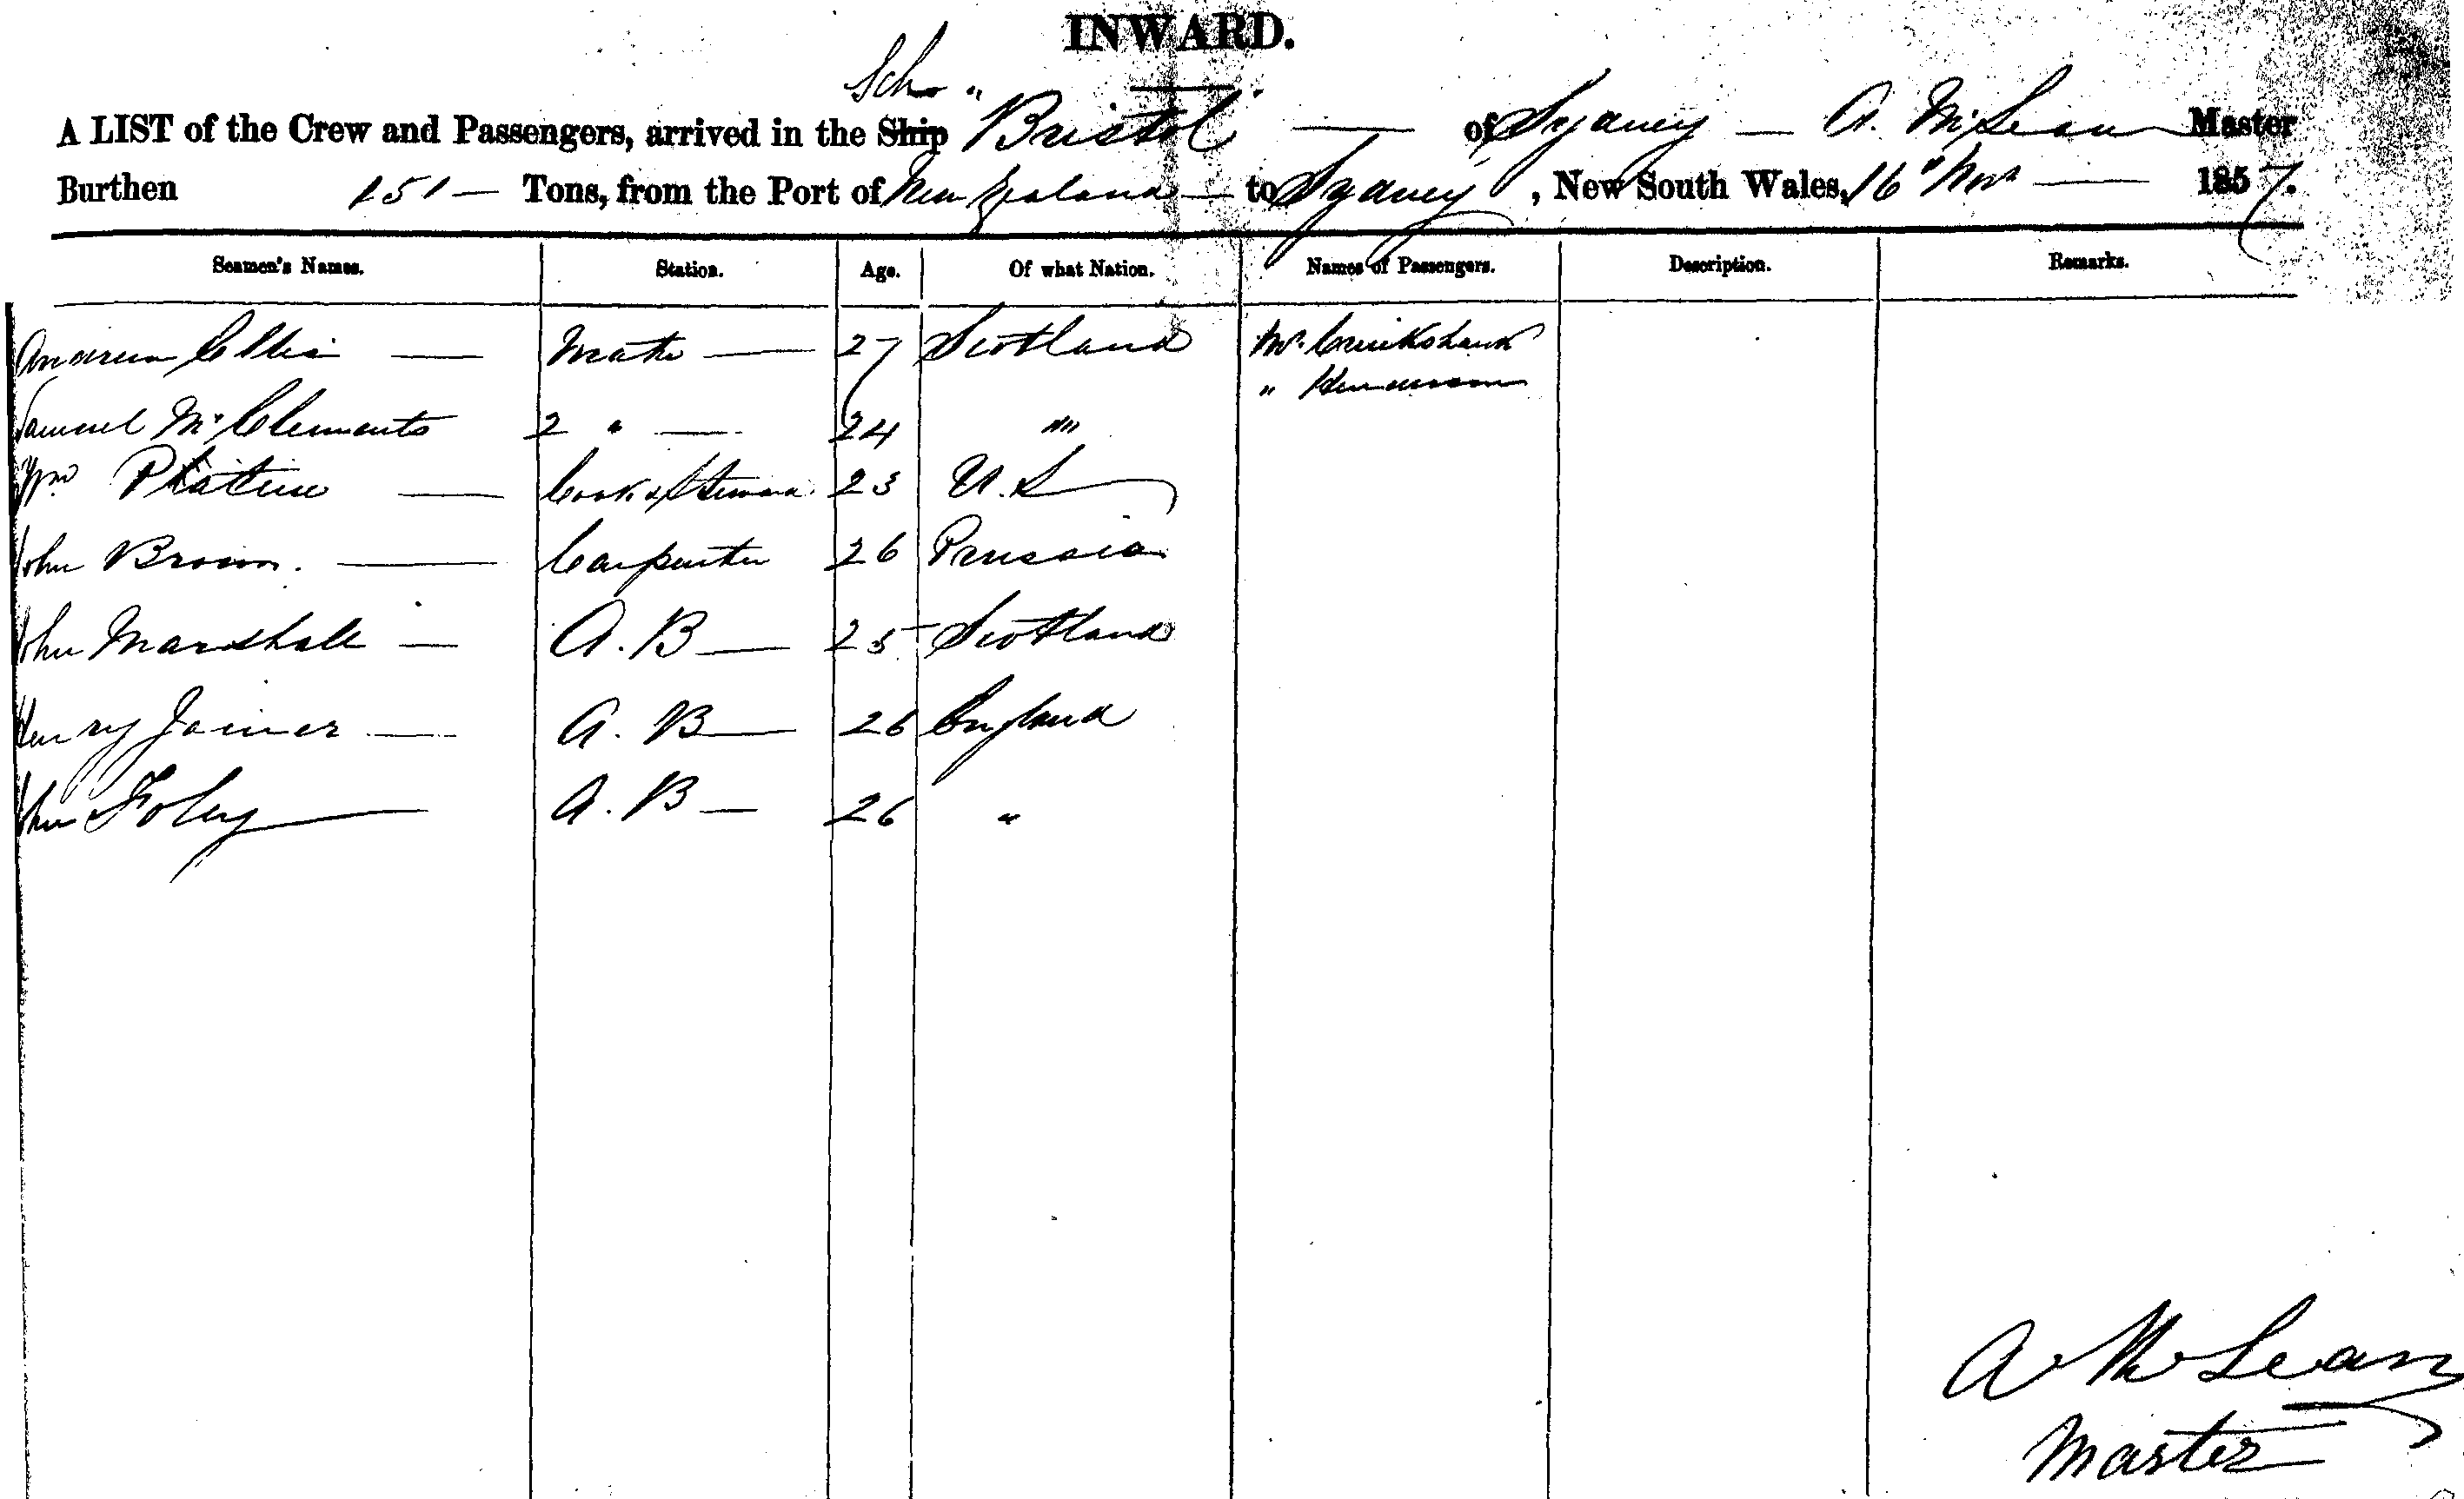 INWARD.
Schr "
A LIST of the Crew and Passengers, arrived in the Ship Bristol — of Sydney — A. McLean Master
Burthen 151 — Tons, from the Port of New Zealand — to Sydney, New South Wales, 16" Novr — 1857.
Seamen's Names. Station. Age. Of what Nation. Names of Passengers. Description. Remarks.
Andrew Ellis — Mate — 27 Scotland Mr. Cruikshank
" Henderson
Samuel McClements 2 " — 24 ""
Wm — Cook & Steward 23 U. S
John Brown. — Carpenter 26 Prussia
John Marshall — A. B — 25 Scotland
Henry Joiner — A. B — 26 England
John Foley — A. B — 26 "
A McLean
Master